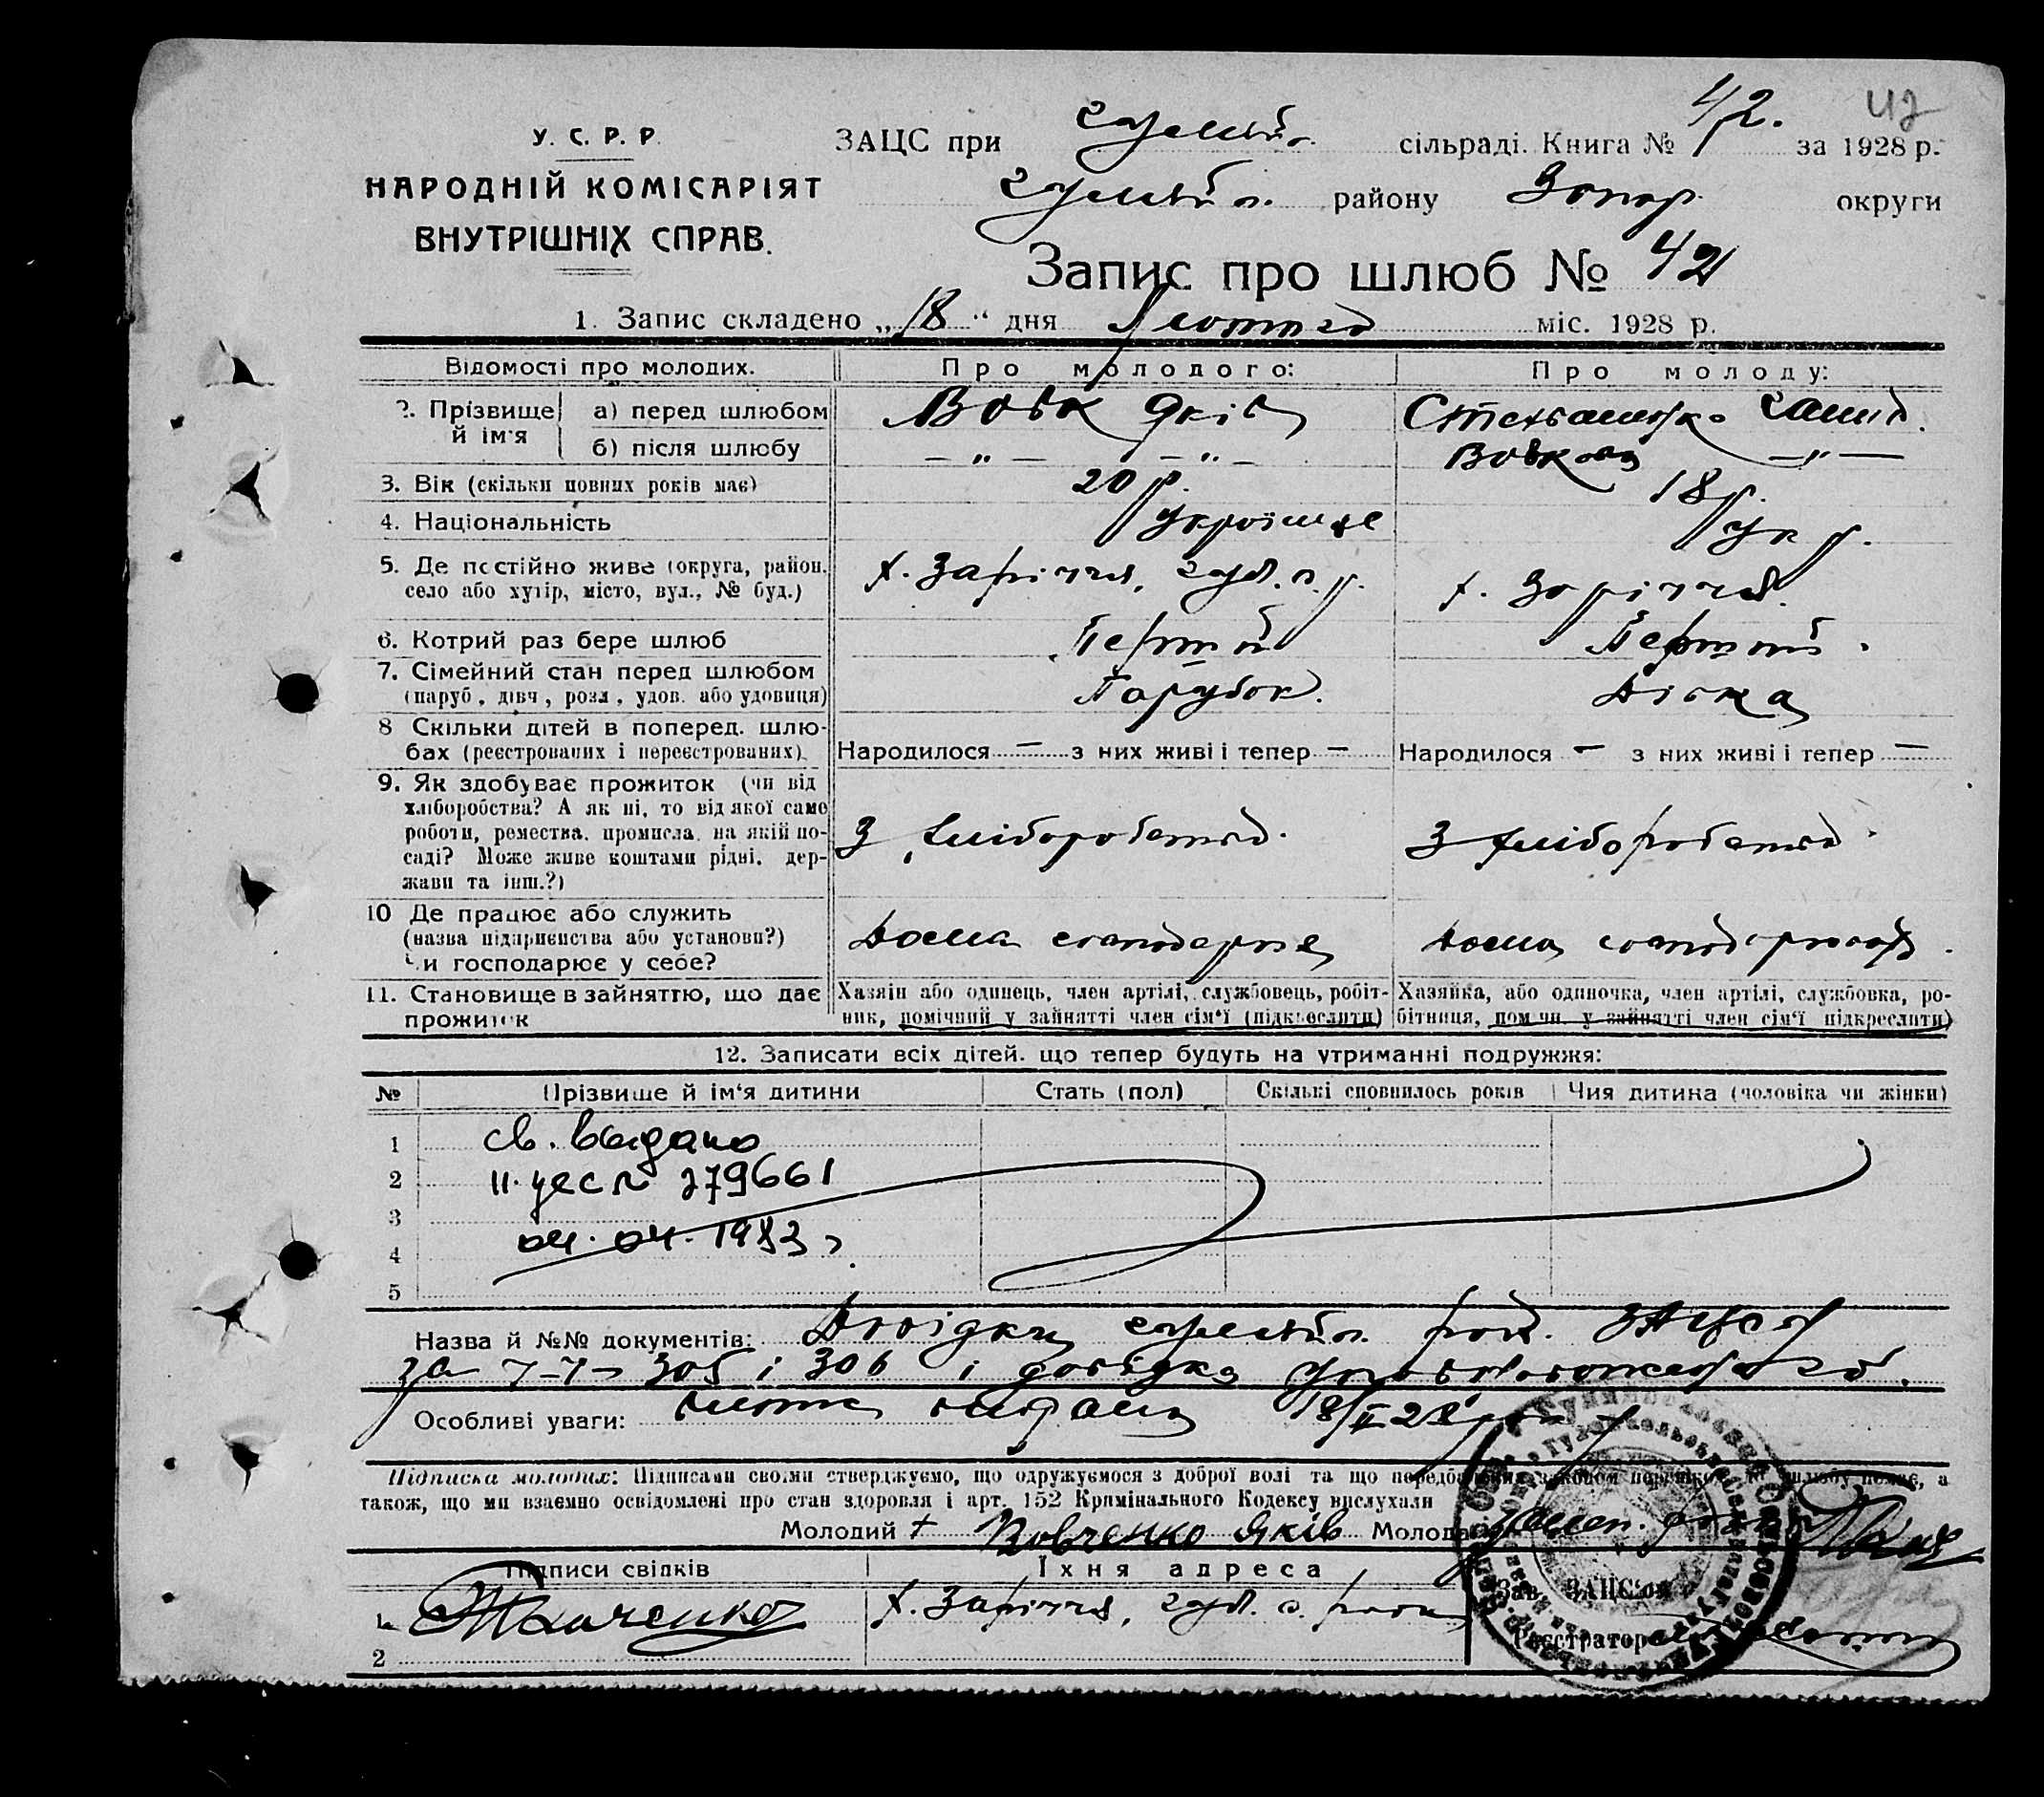 У. С. Р. Р.
НАРОДНІЙ КОМІСАРІЯТ
ВНУТРІШНІХ СПРАВ.
42
ЗАЦС при сільраді. Книга № 42. за 1928 р.
району Запор. округи
Запис про шлюб № 42
1. Запис складено „18“ дня Лютого міс. 1928 р.
Відомості про молодих. Про молодого: Про молоду:
2. Прізвище й ім'я
а) перед шлюбом Вовк Яків
б) після шлюбу — „ — — „ — Вовкова — „ —
3. Вік (скільки повних років має) 20 р. 18 р.
4. Національність Укр.
5. Де постійно живе (округа, район, село або хутір, місто, вул., № буд.) х. Заріччя, х. Заріччя
6. Котрий раз бере шлюб Перший Перший.
7. Сімейний стан перед шлюбом (паруб., дівч., розл., удов. або удовиця) Парубок. Дівка
8 Скільки дітей в поперед. шлюбах (реєстрованих і нереєстрованих) Народилося — з них живі і тепер — Народилося — з них живі і тепер —
9. Як здобуває прожиток (чи від хліборобства? А як ні, то від якої саме роботи, ремества, промисла, на якій посаді? Може живе коштами рідні, держави та інш.?) З хліборобства. З хліборобства
10 Де працює або служить (назва підприємства або установи?) Чи господарює у себе? Дома Дома
11. Становище в зайняттю, що дає прожиток
Хазяїн або одинець, член артілі, службовець, робітник, помічний у зайнятті член сім'ї (підкреслити)
Хазяйка, або одиночка, член артілі, службовка, робітниця, помічн. у зайнятті член сім'ї підкреслити)
12. Записати всіх дітей, що тепер будуть на утриманні подружжя:
№ Прізвише й ім'я дитини Стать (пол) Скількі сповнилось років Чия дитина (чоловіка чи жінки)
1 св. выдано
2 279661
3
4
5
Назва й №№ документів: Довідки
305 і 306 і довідка
Особливі уваги: 18/II 28
Підписка молодих: Підписами своїми стверджуємо, що одружуємося з доброї волі та що передбачених законом перешкод до шлюбу немає, а
також, що ми взаємно освідомлені про стан здоровля і арт. 152 Кримінального Кодексу вислухали
Молодий + Вовченко Яків Молода
Підписи свідків Їхня адреса
1. Ткаченко х. Заріччя,
Зав. ЗАЦС'ом
2
Реєстратор